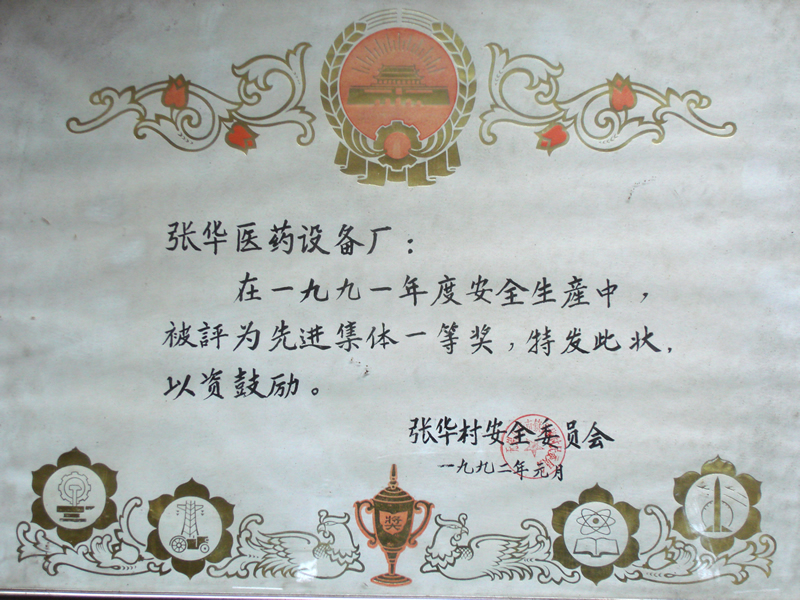 张华医药设备厂：
在一九九一年度安全生産中，
被評为先进集体一等奖，特发此状，
以资鼓励。
张华村安全委员会
一九九二年元月
將